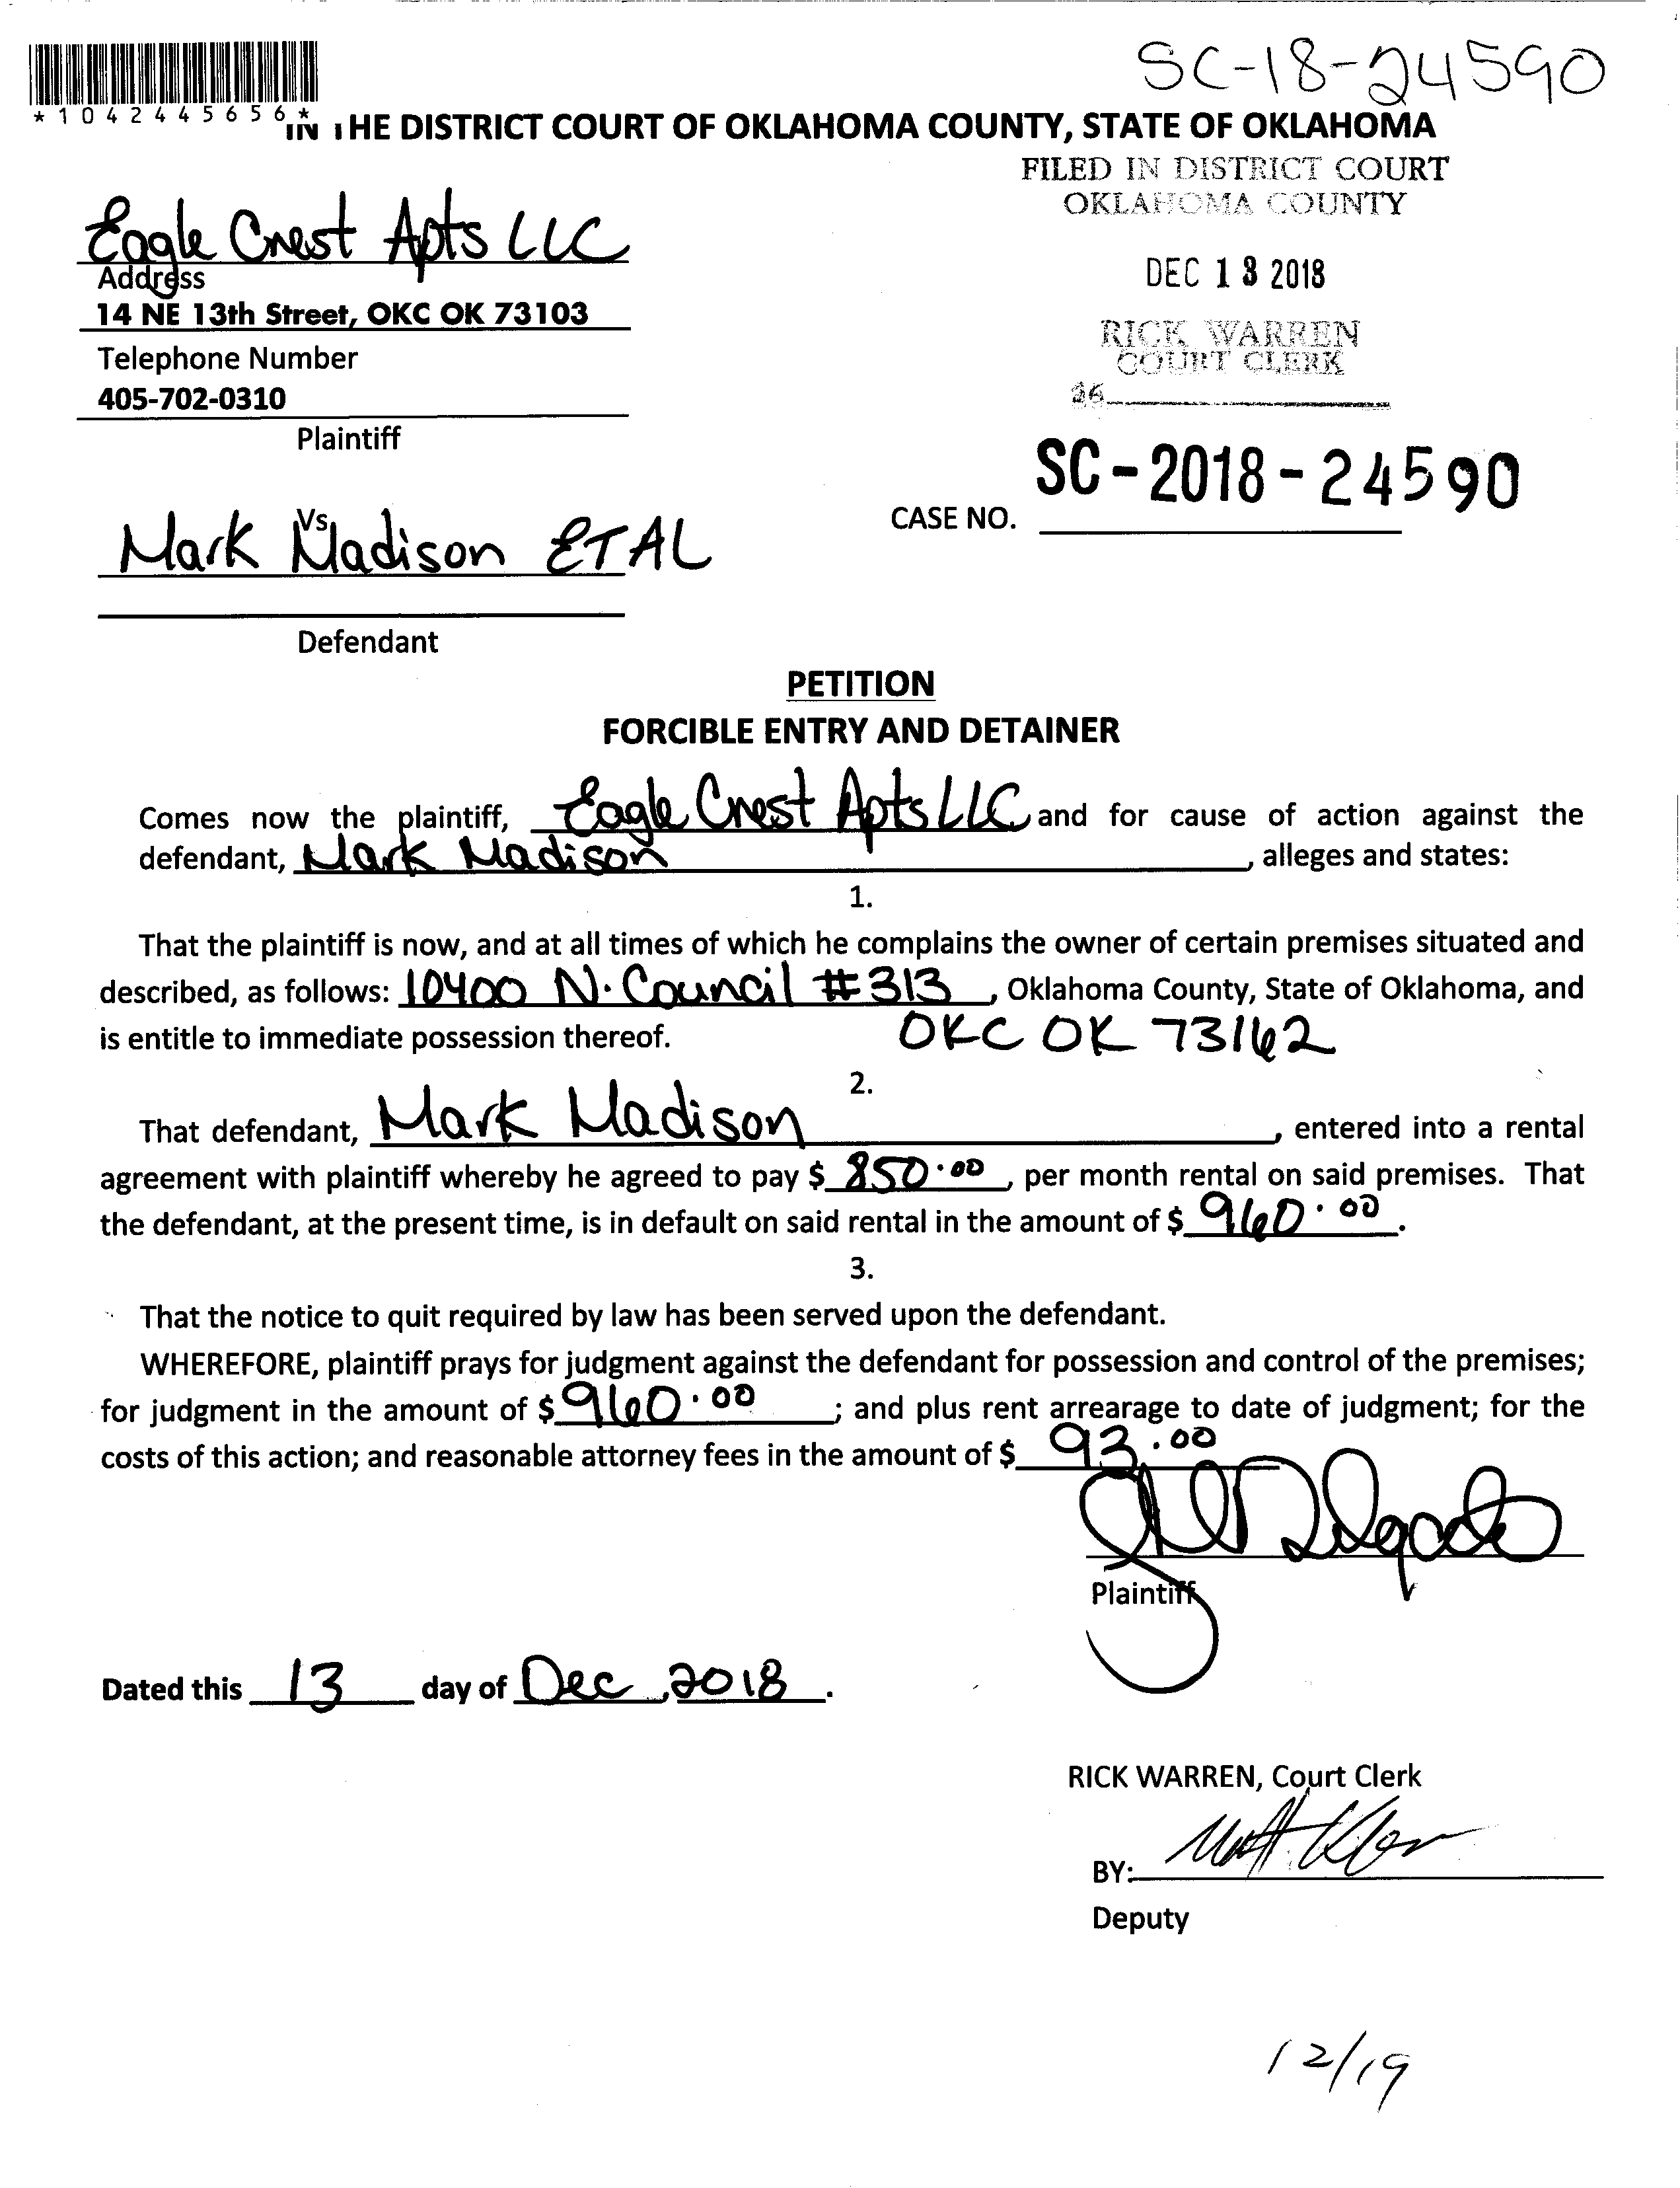 SC-18-24590
*1042445656*
IN THE DISTRICT COURT OF OKLAHOMA COUNTY, STATE OF OKLAHOMA
FILED IN DISTRICT COURT
OKLAHOMA COUNTY
Eagle Crest Apts LLC
Address
DEC 13 2018
14 NE 13th Street, OKC OK 73103
RICK WARREN
COURT CLERK
Telephone Number
405-702-0310
26
Plaintiff
SC-2018-24590
CASE NO.
Vs
Mark Madison ETAL
Defendant
PETITION
FORCIBLE ENTRY AND DETAINER
Comes now the plaintiff, Eagle Crest Apts LLC and for cause of action against the
defendant, Mark Madison, alleges and states:
1.
That the plaintiff is now, and at all times of which he complains the owner of certain premises situated and
described, as follows: 10400 N. Council #313, Oklahoma County, State of Oklahoma, and
is entitle to immediate possession thereof. OKC OK 73162
2.
That defendant, Mark Madison, entered into a rental
agreement with plaintiff whereby he agreed to pay $ 850.00, per month rental on said premises. That
the defendant, at the present time, is in default on said rental in the amount of $ 960.00.
3.
That the notice to quit required by law has been served upon the defendant.
WHEREFORE, plaintiff prays for judgment against the defendant for possession and control of the premises;
for judgment in the amount of $ 960.00; and plus rent arrearage to date of judgment; for the
costs of this action; and reasonable attorney fees in the amount of $ 93.00
Plaintiff
Dated this 13 day of Dec, 2018.
RICK WARREN, Court Clerk
BY:
Deputy
12/19